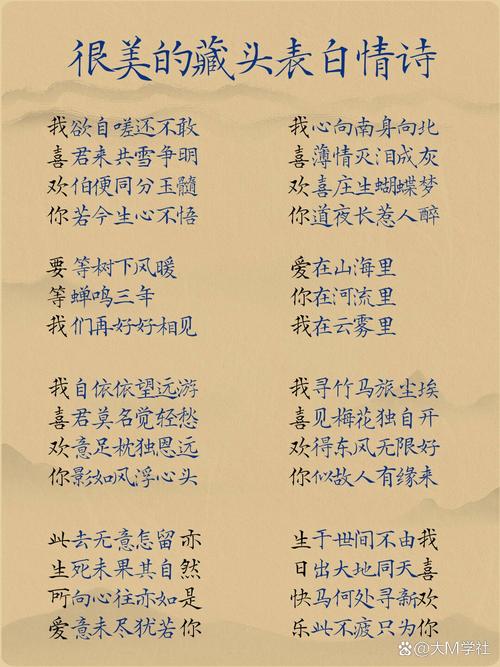 很美的藏头表白情诗
我欲自嗟还不敢
喜君来共雪争明
欢伯便同分玉髓
你若今生心不悟
我心向南身向北
喜薄情灭泪成灰
欢喜庄生蝴蝶梦
你道夜长惹人醉
要等树下风暖
等蝉鸣三年
我们再好好相见
爱在山海里
你在河流里
我在云雾里
我自依依望远游
喜君莫名觉轻愁
欢意足枕独恩远
你影如风浮心头
我寻竹马旅尘埃
喜见梅花独自开
欢得东风无限好
你似故人有缘来
此去无意怎留亦
生死未果其自然
所向心往亦如是
爱意未尽犹若你
生于世间不由我
日出大地同天喜
快马何处寻新欢
乐此不疲只为你
@大M学社